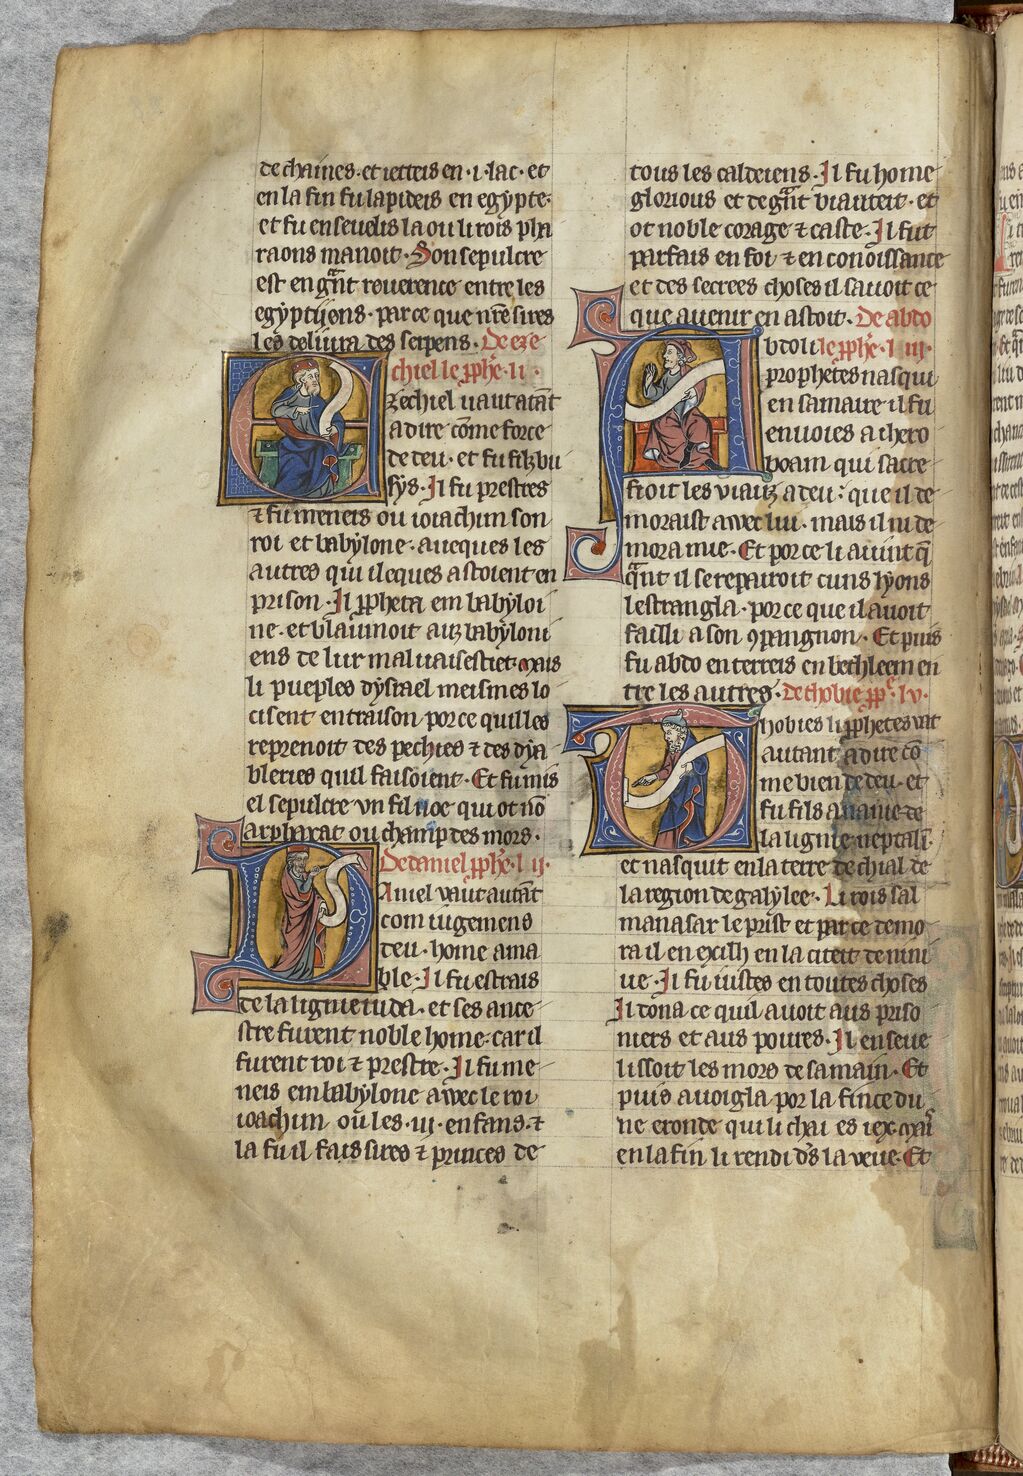 de chaines · et ietteis en · i · lac · et
en la fin fu lapideis en egypte·
et fu enseuelis la ou li rois pha
raons manoit · Son sepulcre
est en gnt reuerence entre les
egyptijens · par ce que nre sires
les deliura des serpens · De eze
chiel le pphe · li ·
Ezechiel uaut atant
a dire come force
de deu · et fu filz bu
sys · Il fu prestres
⁊ fu meneis ou ioiachim son
roi et babylone · aueques les
autres qui ileques astoient en
prison · Il ppheta em babyloi
ne · et blaumoit auz babyloni
ens de lur maluaisestiet · mais
li pueples dysrael meismes lo
cisent entraison por ce quil les
reprenoit des pechies ⁊ des dya
bleries quil faisoient · Et fu mis
el sepulcre un fil noe qui ot no
arphaxat ou champ des mors ·
De daniel pphe · l ii ·
Daniel vaut autant
com iugemens
deu · home ama
ble · Il fu estrais
de la lignie iuda · et ses ance
stre furent noble home · car il
furent roi ⁊ prestre · Il fu me
neis em babylone awec le roi
ioachim ou les · iii · enfans · ⁊
la fu il fais sires ⁊ princes de
tous les caldeiens · Il fu home
glorious et de gnt biauteit · et
ot noble corage ⁊ caste · Il fut
parfais en foi ⁊ en conoissance
et des secrees choses il sauoit ce
que auenir en astoit · De abdo
le pphe · l iii ·
Abdo li
prophetes nasqui
en samaire il fu
enuoies a thero
boam qui sacre
fioit les uiauz a deu : que il de
moraist awec lui · mais il ni de
mora mie · Et por ce li auint q
qnt il se repairoit cuns lyons
lestrangla · por ce que il auoit
failli a son ꝯpangnon · Et puis
fu abdo enterreis en bethleem en
tre les autres · De thobie pp · l v ·
Thobies li pphetes vat
autant a dire co
me bien de deu · et
fu fils ananie de
la lignie neptalī·
et nasquit en la terre de chial de
la region de galylee · Li rois sal
manasar le prist et par ce demo
ra il en exilh en la citeit de nini
ue · Il fu iustes en toutes choses
Il dona ce quil auoit aus priso
niers et aus poures · Il enseue
lissoit les mors de sa main · Et
puis auoigla por la fince du
ne eronde qui li chai es iex · mai
en la fin li rendi ds la veue · Et